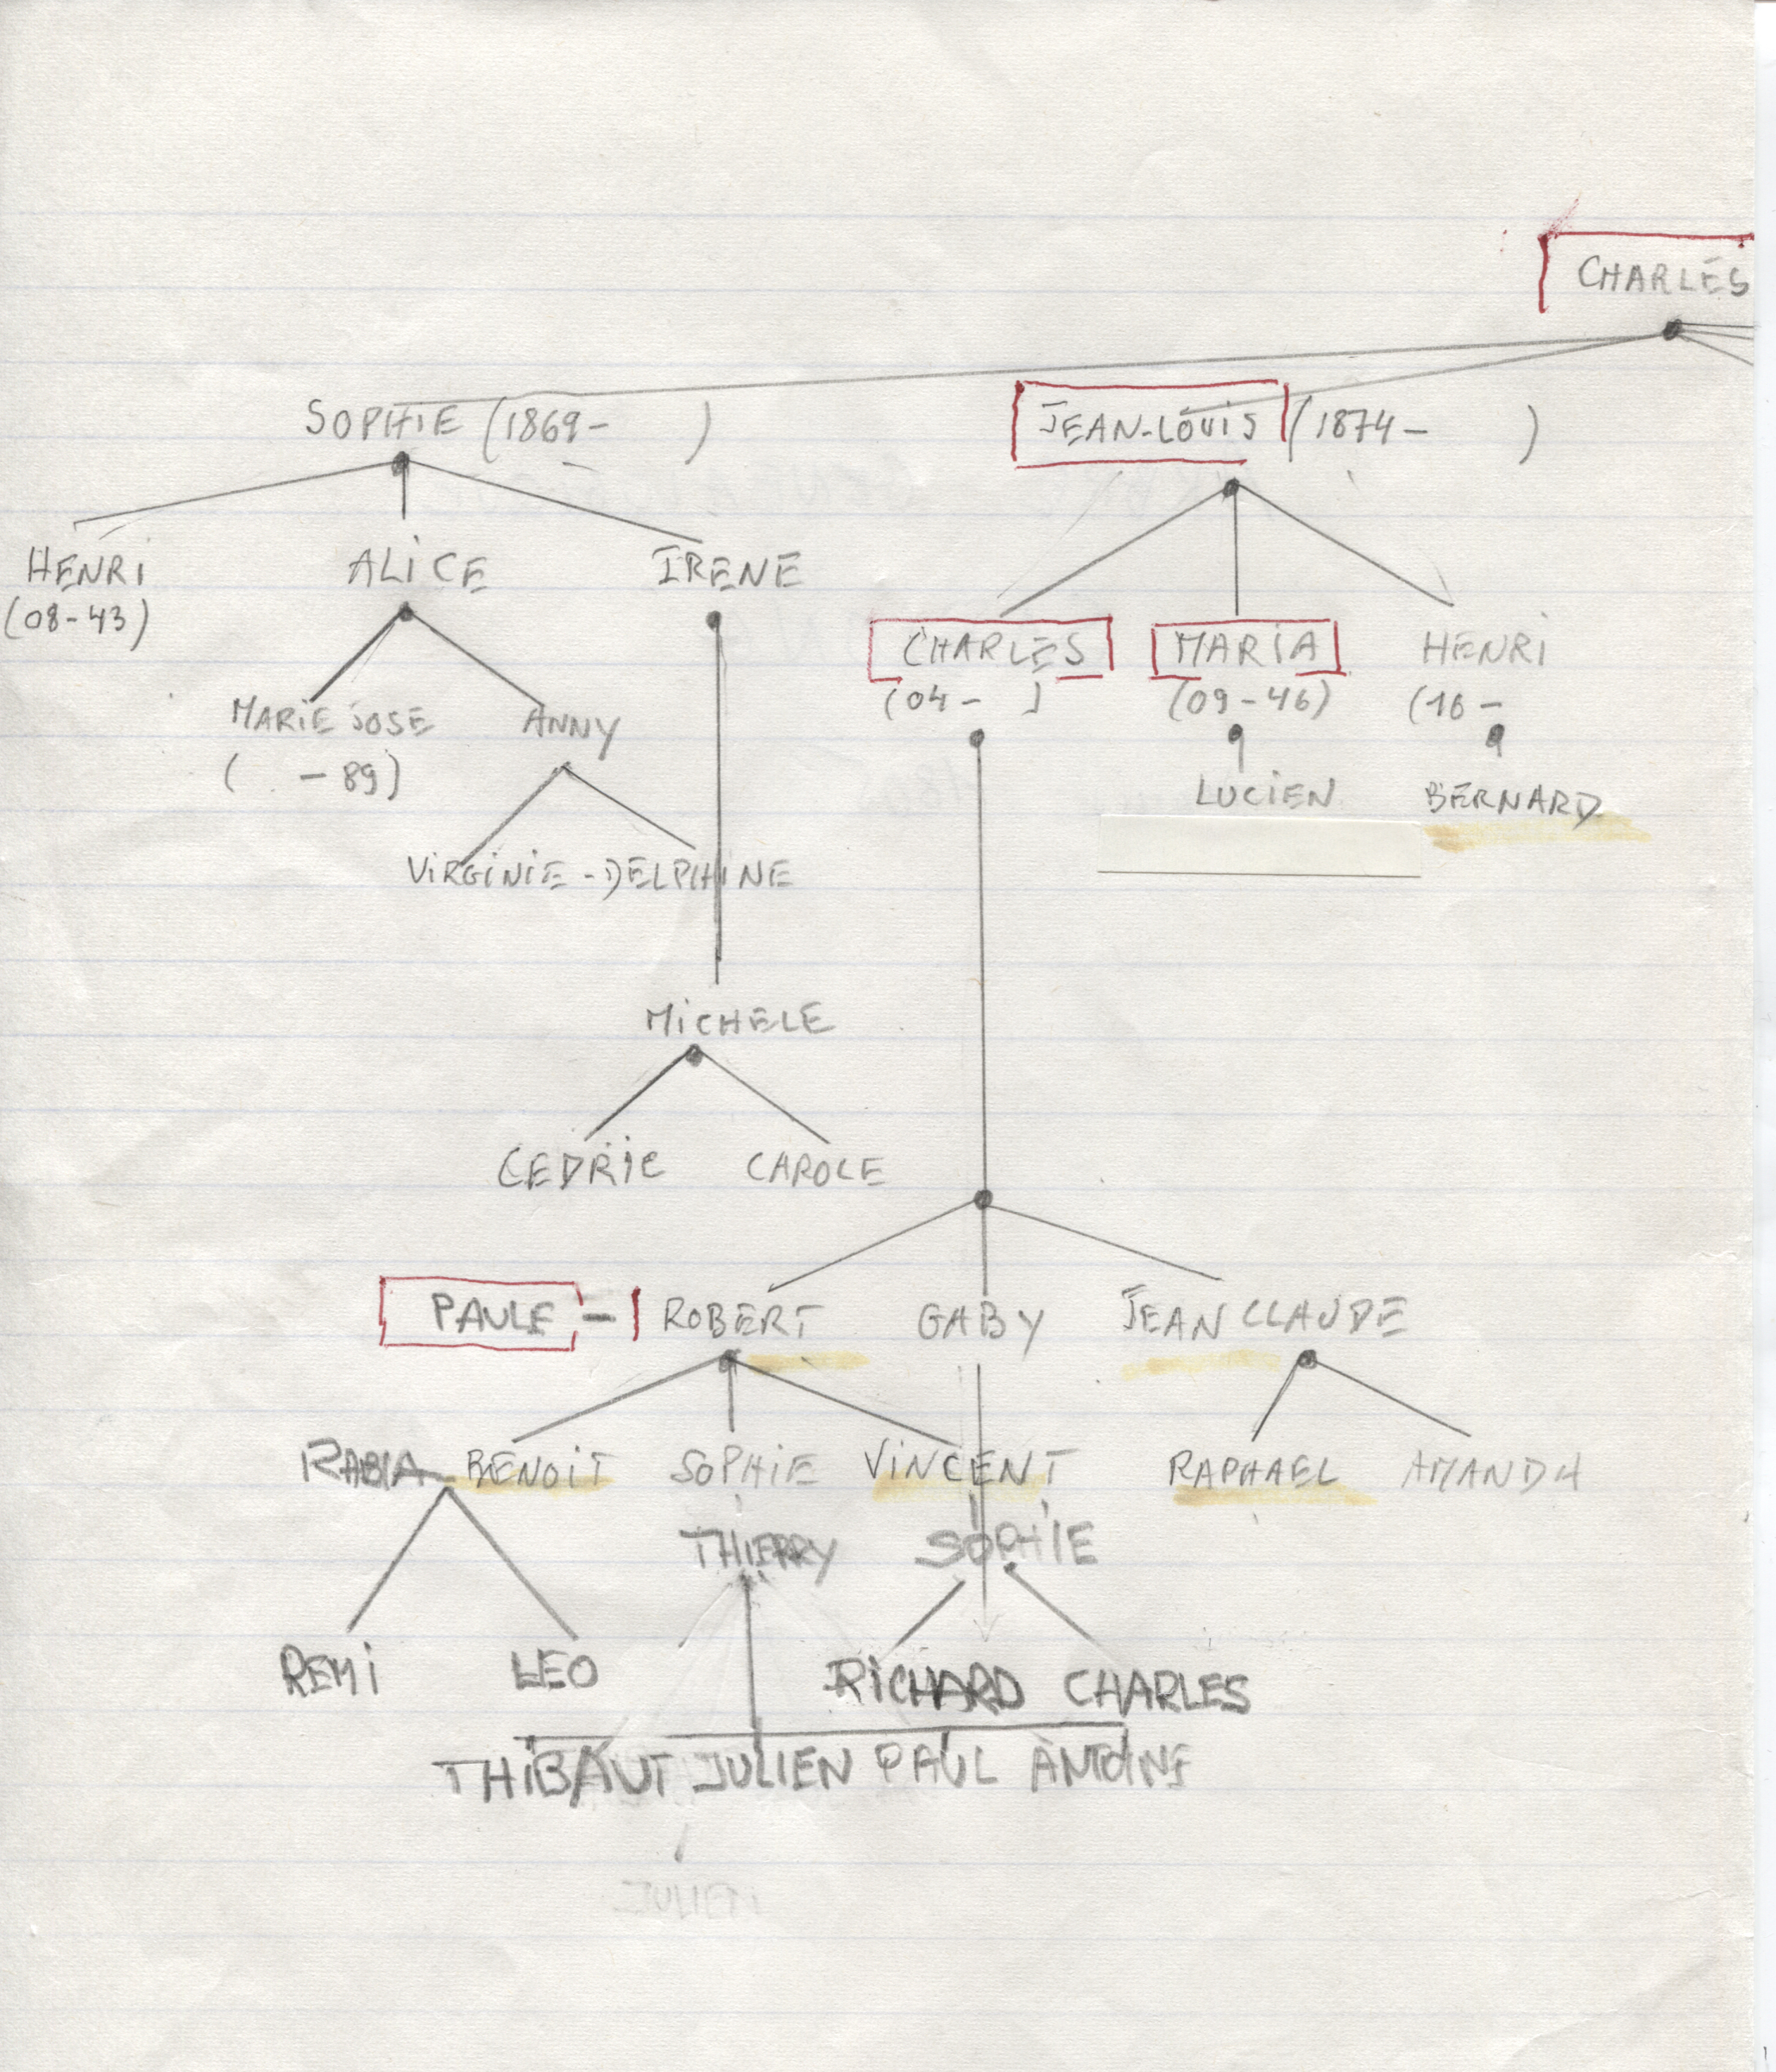 CHARLES
SOPHIE (1869- )
JEAN-LOUIS (1874- )
HENRI ALICE IRENE
(08-43)
CHARLES MARIA HENRI
(04- ) (09-46) (16-
MARIE JOSE ANNY
( -89)
LUCIEN BERNARD
VIRGINIE - DELPHINE
MICHELE
CEDRIC CAROLE
PAULE - ROBERT GABY JEAN CLAUDE
RABIA BENOIT SOPHIE VINCENT RAPHAEL AMANDA
THIERRY SOPHIE
REMI LEO RICHARD CHARLES
THIBAUT JULIEN PAUL ANTOINE
JULIEN